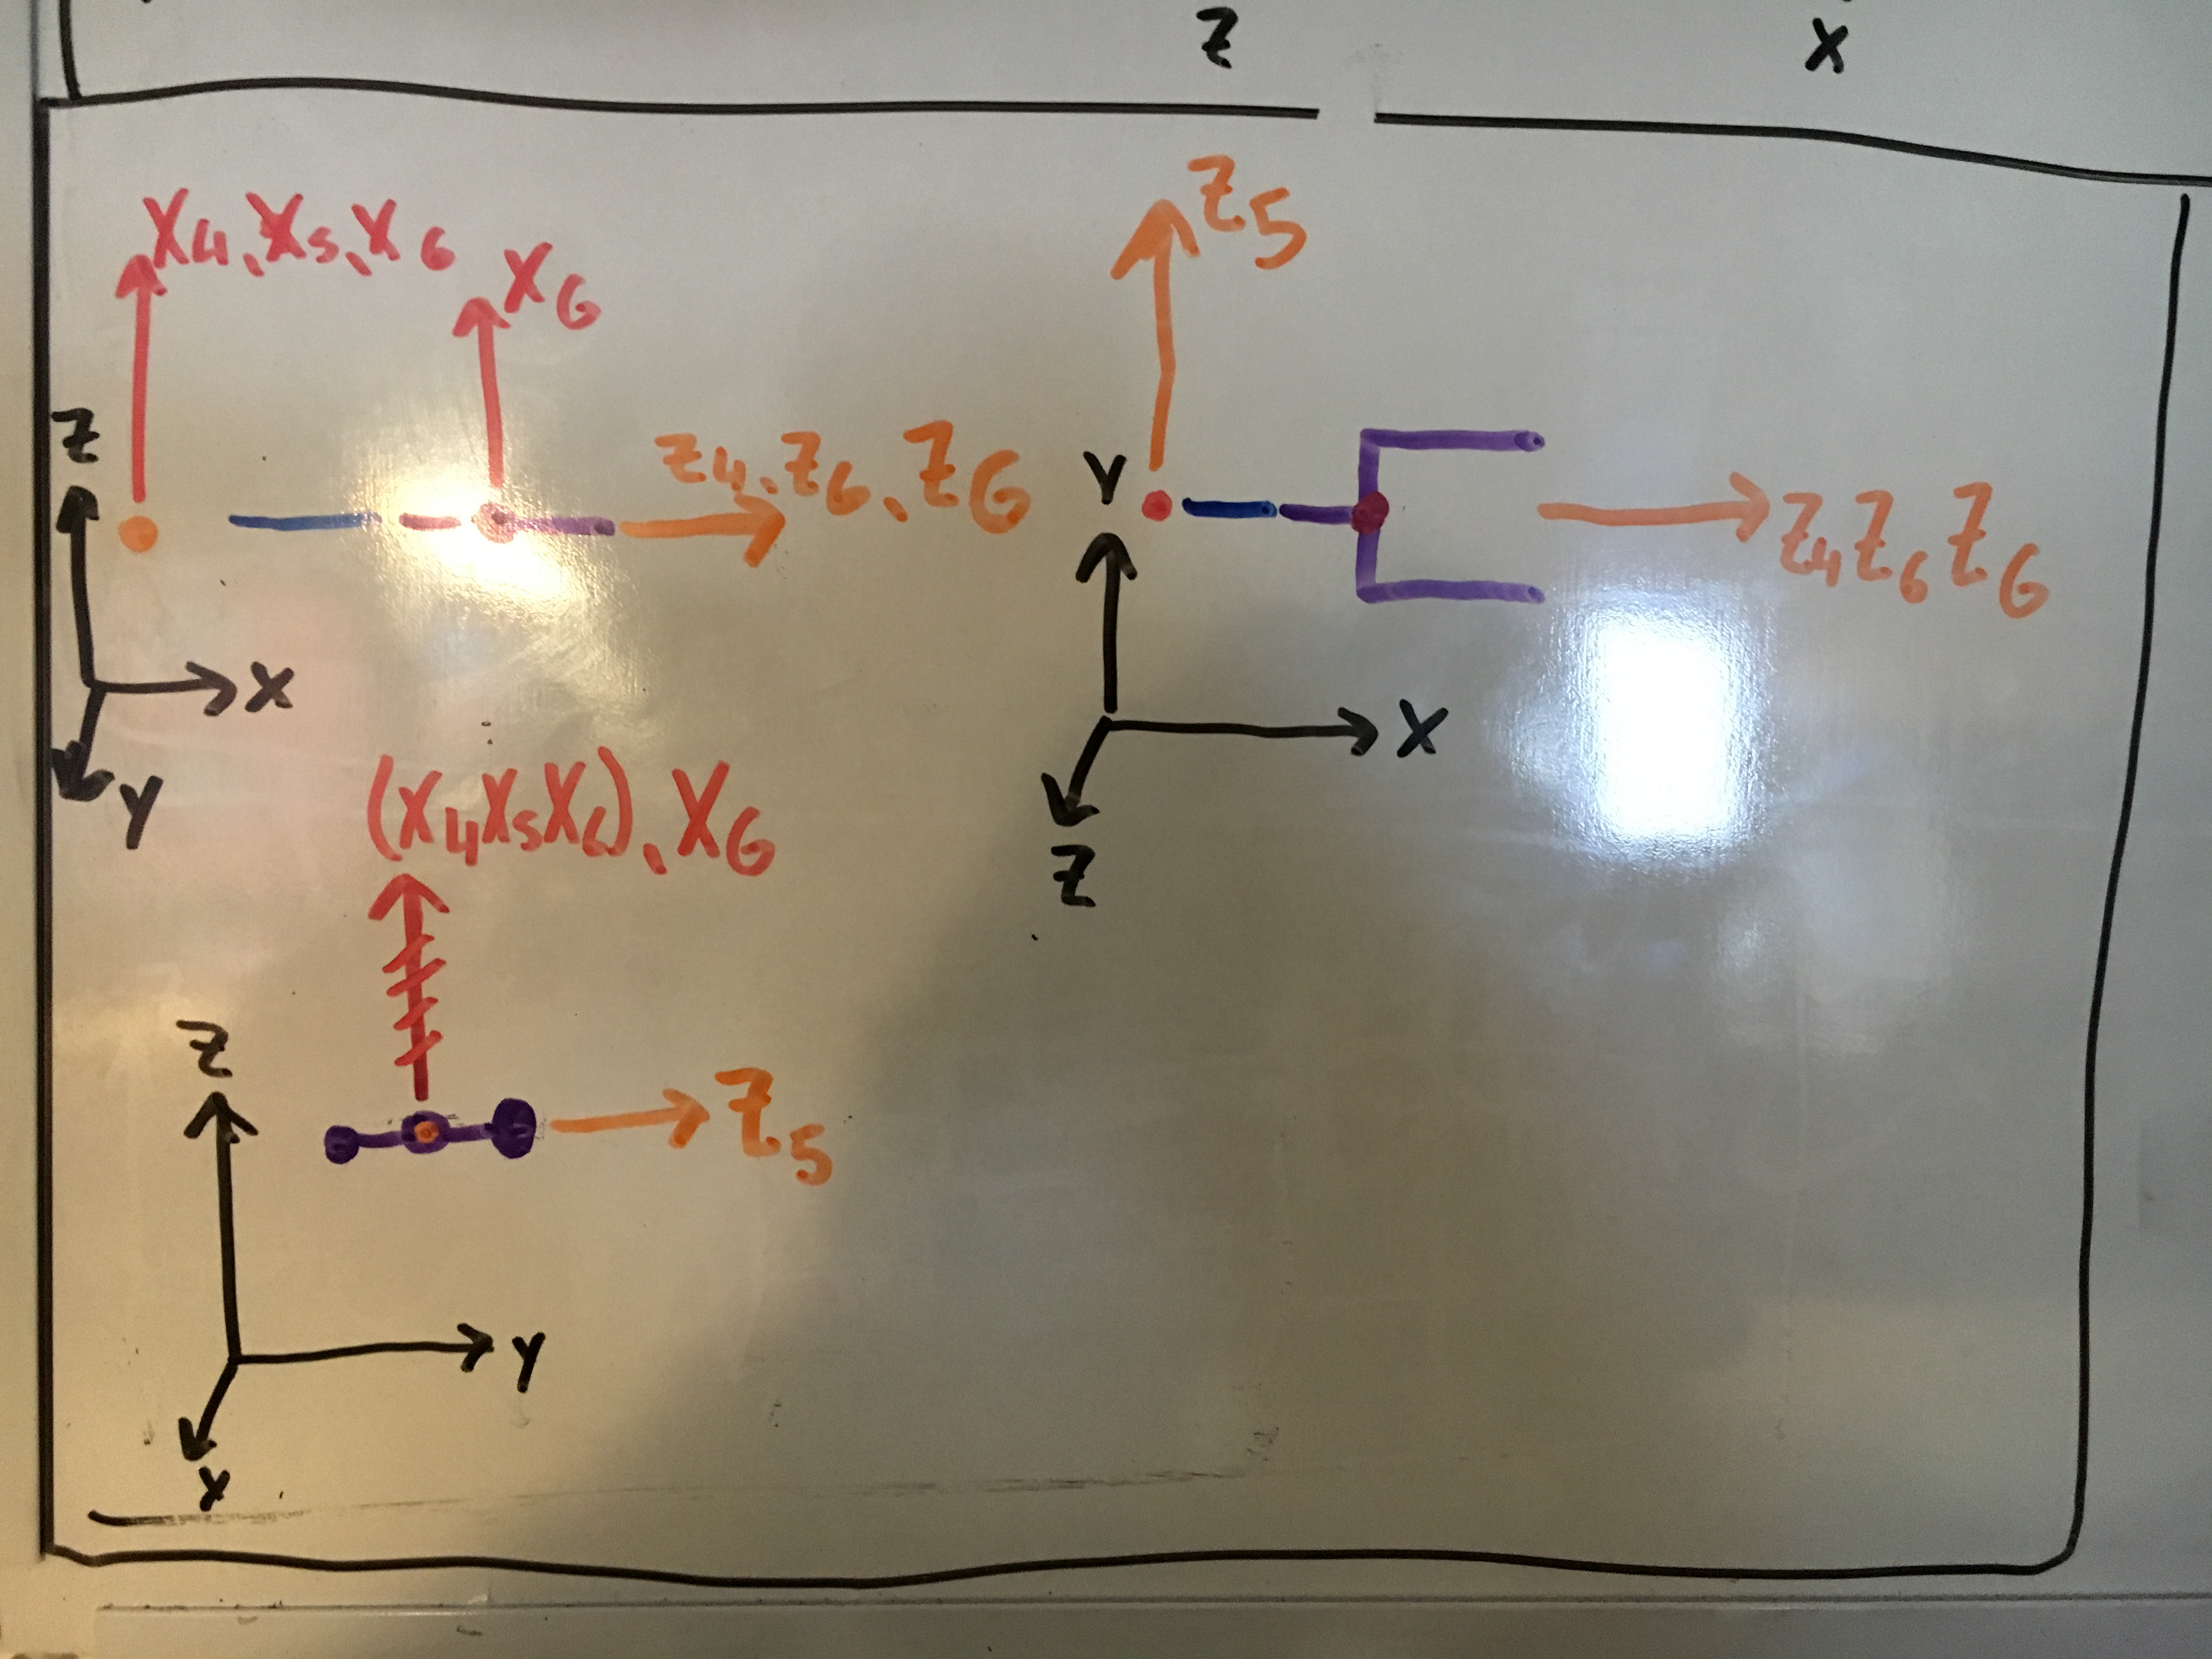 Z
X
X4, X5, X6
XG
Z4, Z6, ZG
Z
X
Y
Z5
Y
Z4 Z6 ZG
X
Z
(X4 X5 X6), XG
Z
Z5
Y
X